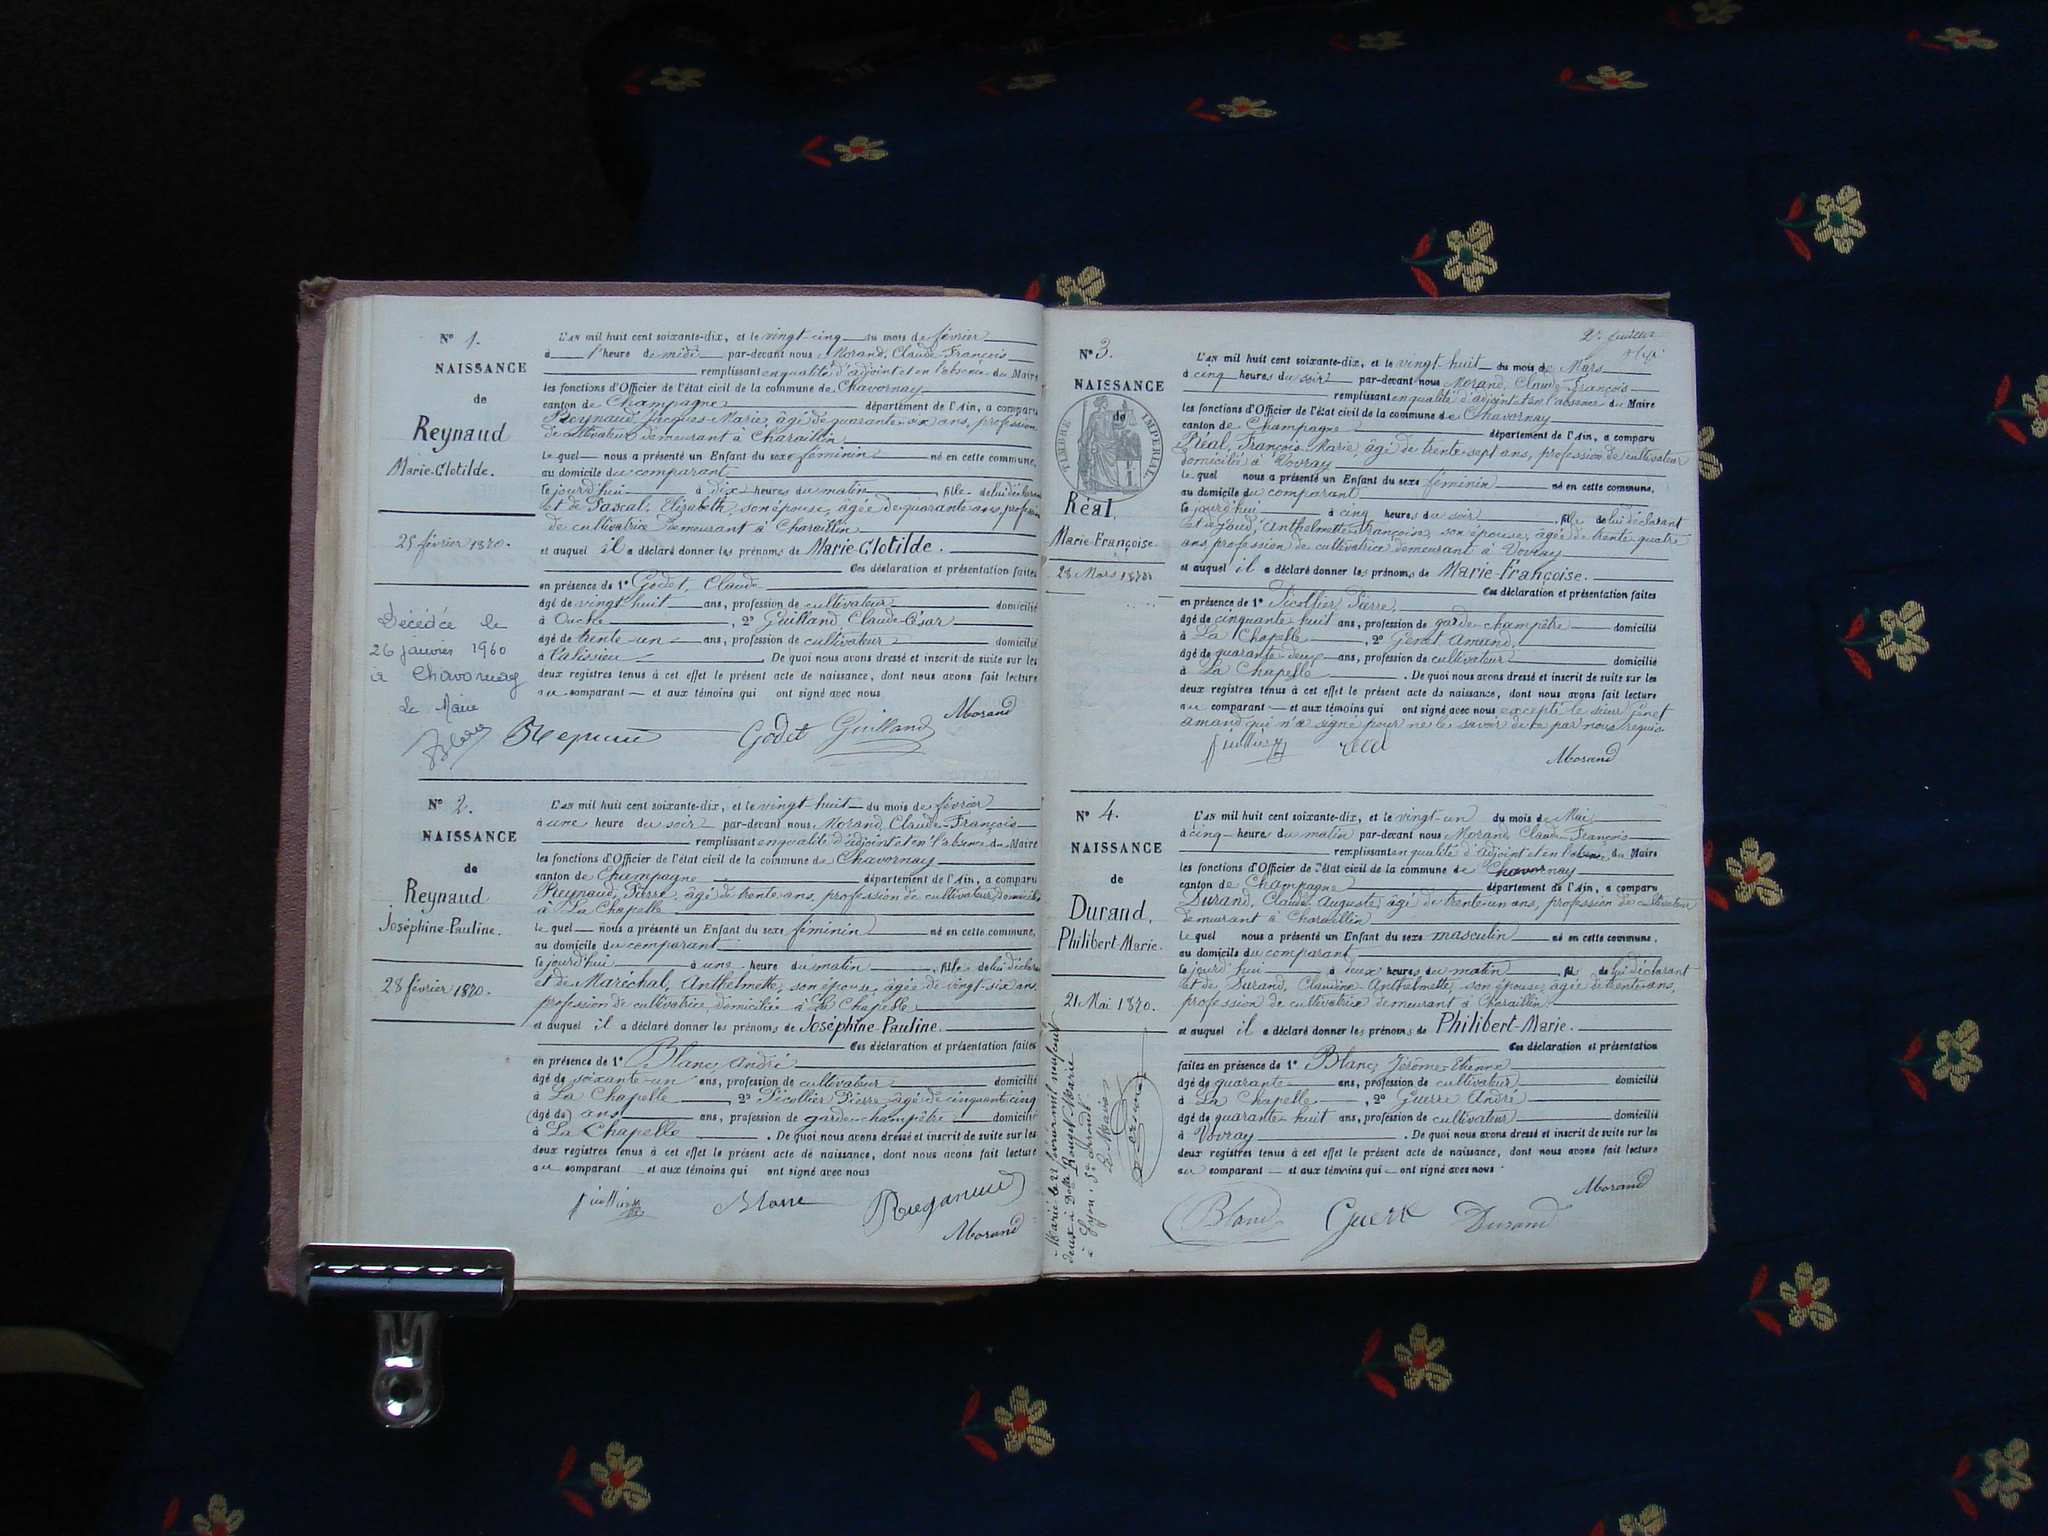 N° 1.
NAISSANCE
de
Reynaud
Marie-Clotilde.
25 février 1870.
Décédée le
26 janvier 1960
à Chavornay
Le Maire
L'AN mil huit cent soixante-dix, et le vingt-cinq du mois de février
à l'heure de midi par-devant nous Morand, Claude-François
remplissant en qualité d'adjoint et en l'absence du Maire
les fonctions d'Officier de l'état civil de la commune de Chavornay
canton de Champagne département de l'Ain, a comparu
Reynaud Jacques-Marie, âgé de quarante-six ans, profession
de cultivateur demeurant à Charaillin
le quel nous a présenté un Enfant du sexe féminin né en cette commune,
au domicile du comparant
le jourd'hui à dix heures du matin, fille de lui déclarant
et de Pascal, Elizabeth, son épouse, âgée de quarante ans, profession
de cultivatrice demeurant à Charaillin
et auquel il a déclaré donner les prénoms de Marie-Clotilde.
Ces déclaration et présentation faites
en présence de 1° Godet, Claude
âgé de vingt-huit ans, profession de cultivateur domicilié
à Ouche, 2° Guilland Claude-César
âgé de trente-un ans, profession de cultivateur domicilié
à De quoi nous avons dressé et inscrit de suite sur les
deux registres tenus à cet effet le présent acte de naissance, dont nous avons fait lecture
au comparant et aux témoins qui ont signé avec nous
Morand
Godet Guilland
N° 2.
NAISSANCE
de
Reynaud
Joséphine-Pauline.
28 février 1870.
L'AN mil huit cent soixante-dix, et le vingt-huit du mois de février
à une heure du soir par-devant nous Morand, Claude-François
remplissant en qualité d'adjoint et en l'absence du Maire
les fonctions d'Officier de l'état civil de la commune de Chavornay
canton de Champagne département de l'Ain, a comparu
Reynaud, Pierre, âgé de trente ans, profession de cultivateur domicilié
à La Chapelle
le quel nous a présenté un Enfant du sexe féminin né en cette commune,
au domicile du comparant
le jourd'hui à une heure du matin, fille de lui déclarant
et de Maréchal, Anthelmette, son épouse, âgée de vingt-six ans,
profession de cultivatrice, domiciliée à La Chapelle
et auquel il a déclaré donner les prénoms de Joséphine-Pauline.
Ces déclaration et présentation faites
en présence de 1° Blanc, André
âgé de soixante-un ans, profession de cultivateur domicilié
à La Chapelle, 2° Picollier Pierre, âgé de cinquante cinq
(âgé de) ans ans, profession de garde-champêtre domicilié
à La Chapelle. De quoi nous avons dressé et inscrit de suite sur les
deux registres tenus à cet effet le présent acte de naissance, dont nous avons fait lecture
au comparant et aux témoins qui ont signé avec nous
Blanc
Morand
2e feuillet
N° 3.
NAISSANCE
de
TIMBRE IMPÉRIAL
Réal
Marie-Françoise.
28 Mars 1870
L'AN mil huit cent soixante-dix, et le vingt-huit du mois de Mars
à cinq heures du soir par-devant nous Morand, Claude-François
remplissant en qualité d'adjoint et en l'absence du Maire
les fonctions d'Officier de l'état civil de la commune de Chavornay
canton de Champagne département de l'Ain, a comparu
Réal, François-Marie, âgé de trente-sept ans, profession de cultivateur
domicilié à Vovray
le quel nous a présenté un Enfant du sexe féminin né en cette commune,
au domicile du comparant
le jourd'hui à cinq heures du soir, fille de lui déclarant
et de Jaud, Anthelmette-Françoise, son épouse, âgée de trente-quatre
ans, profession de cultivatrice demeurant à Vovray
et auquel il a déclaré donner les prénoms de Marie-Françoise.
Ces déclaration et présentation faites
en présence de 1° Picollier Pierre,
âgé de cinquante huit ans, profession de garde-champêtre domicilié
à La Chapelle, 2° Genet Amand,
âgé de quarante-deux ans, profession de cultivateur domicilié
à La Chapelle. De quoi nous avons dressé et inscrit de suite sur les
deux registres tenus à cet effet le présent acte de naissance, dont nous avons fait lecture
au comparant et aux témoins qui ont signé avec nous excepté le sieur Jenet
amand qui n'a signé pour ne le savoir de ce par nous requis
Morand
N° 4.
NAISSANCE
de
Durand,
Philibert-Marie.
21 Mai 1870.
Marié le 22 février mil neuf cent
deux à Delle Rouget Marie
à Lyon, 5e arrondt
Le Maire
L'AN mil huit cent soixante-dix, et le vingt-un du mois de Mai
à cinq heures du matin par-devant nous Morand Claude-François
remplissant en qualité d'adjoint et en l'absence du Maire
les fonctions d'Officier de l'état civil de la commune de Chavornay
canton de Champagne département de l'Ain, a comparu
Durand, Claude-Auguste, âgé de trente-un ans, profession de cultivateur
demeurant à Charaillin
le quel nous a présenté un Enfant du sexe masculin né en cette commune,
au domicile du comparant
le jourd'hui à deux heures du matin, fils de lui déclarant
et de Durand, Claudine-Anthelmette, son épouse, âgée de trente ans,
profession de cultivatrice demeurant à Charaillin
et auquel il a déclaré donner les prénoms de Philibert-Marie.
Ces déclaration et présentation
faites en présence de 1° Blanc, Jérôme-Etienne
âgé de quarante ans, profession de cultivateur domicilié
à La Chapelle, 2° Guerre André
âgé de quarante-huit ans, profession de cultivateur domicilié
à Vovray. De quoi nous avons dressé et inscrit de suite sur les
deux registres tenus à cet effet le présent acte de naissance, dont nous avons fait lecture
au comparant et aux témoins qui ont signé avec nous.
Morand
Blanc Guerre Durand